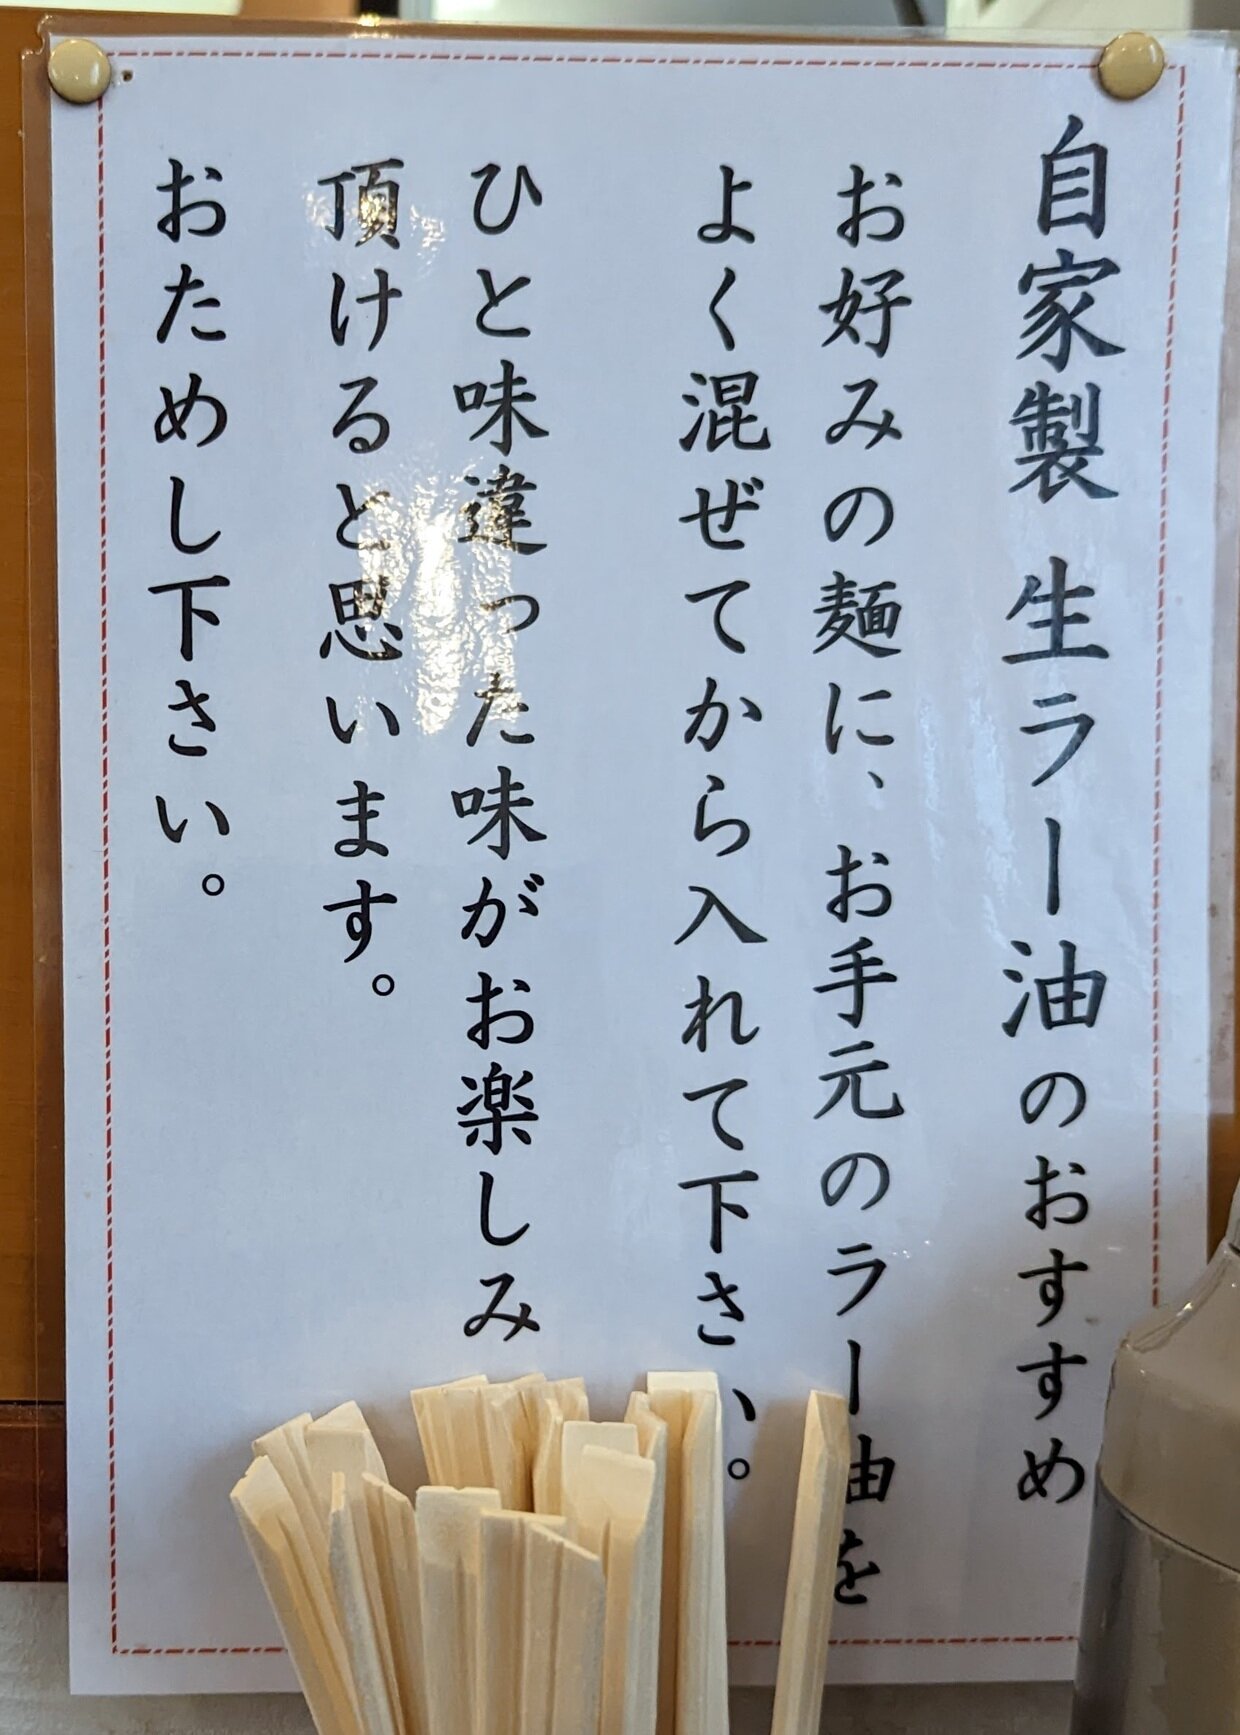 自家製 生ラー油のおすすめ
お好みの麺に、お手元のラー油を
よく混ぜてから入れて下さい。
ひと味違った味がお楽しみ
頂けると思います。
おためし下さい。